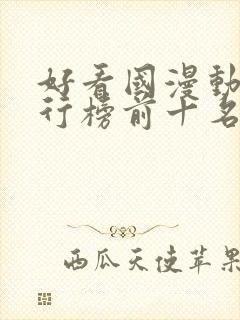 好看國漫動
行榜前十名
西瓜天使苹果